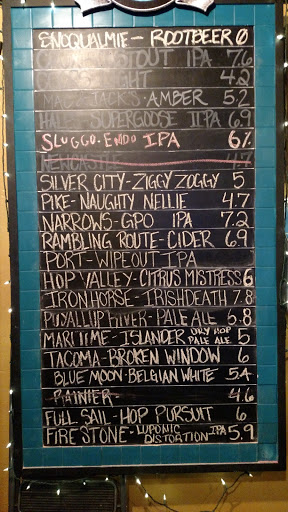 SNOQUALMIE - ROOTBEER 0
STOUT IPA 7.6
LIGHT 4.2
MAC & JACK'S - AMBER 5.2
HALE'S SUPERGOOSE IIPA 6.9
SLUGGO - ENDO IPA 6%
NEWCASTLE 4.7
SILVER CITY - ZIGGY ZOGGY 5
PIKE - NAUGHTY NELLIE 4.7
NARROWS - GPO IPA 7.2
RAMBLING ROUTE - CIDER 6.9
PORT - WIPEOUT IPA
HOP VALLEY - CITRUS MISTRESS 6
IRON HORSE - IRISH DEATH 7.8
PUYALLUP RIVER - PALE ALE 5.8
MARITIME - ISLANDER DRY HOP PALE ALE 5
TACOMA - BROKEN WINDOW 6
BLUE MOON - BELGIAN WHITE 5.4
RAINIER - 4.6
FULL SAIL - HOP PURSUIT 6
FIRESTONE - LUPONIC DISTORTION IPA 5.9